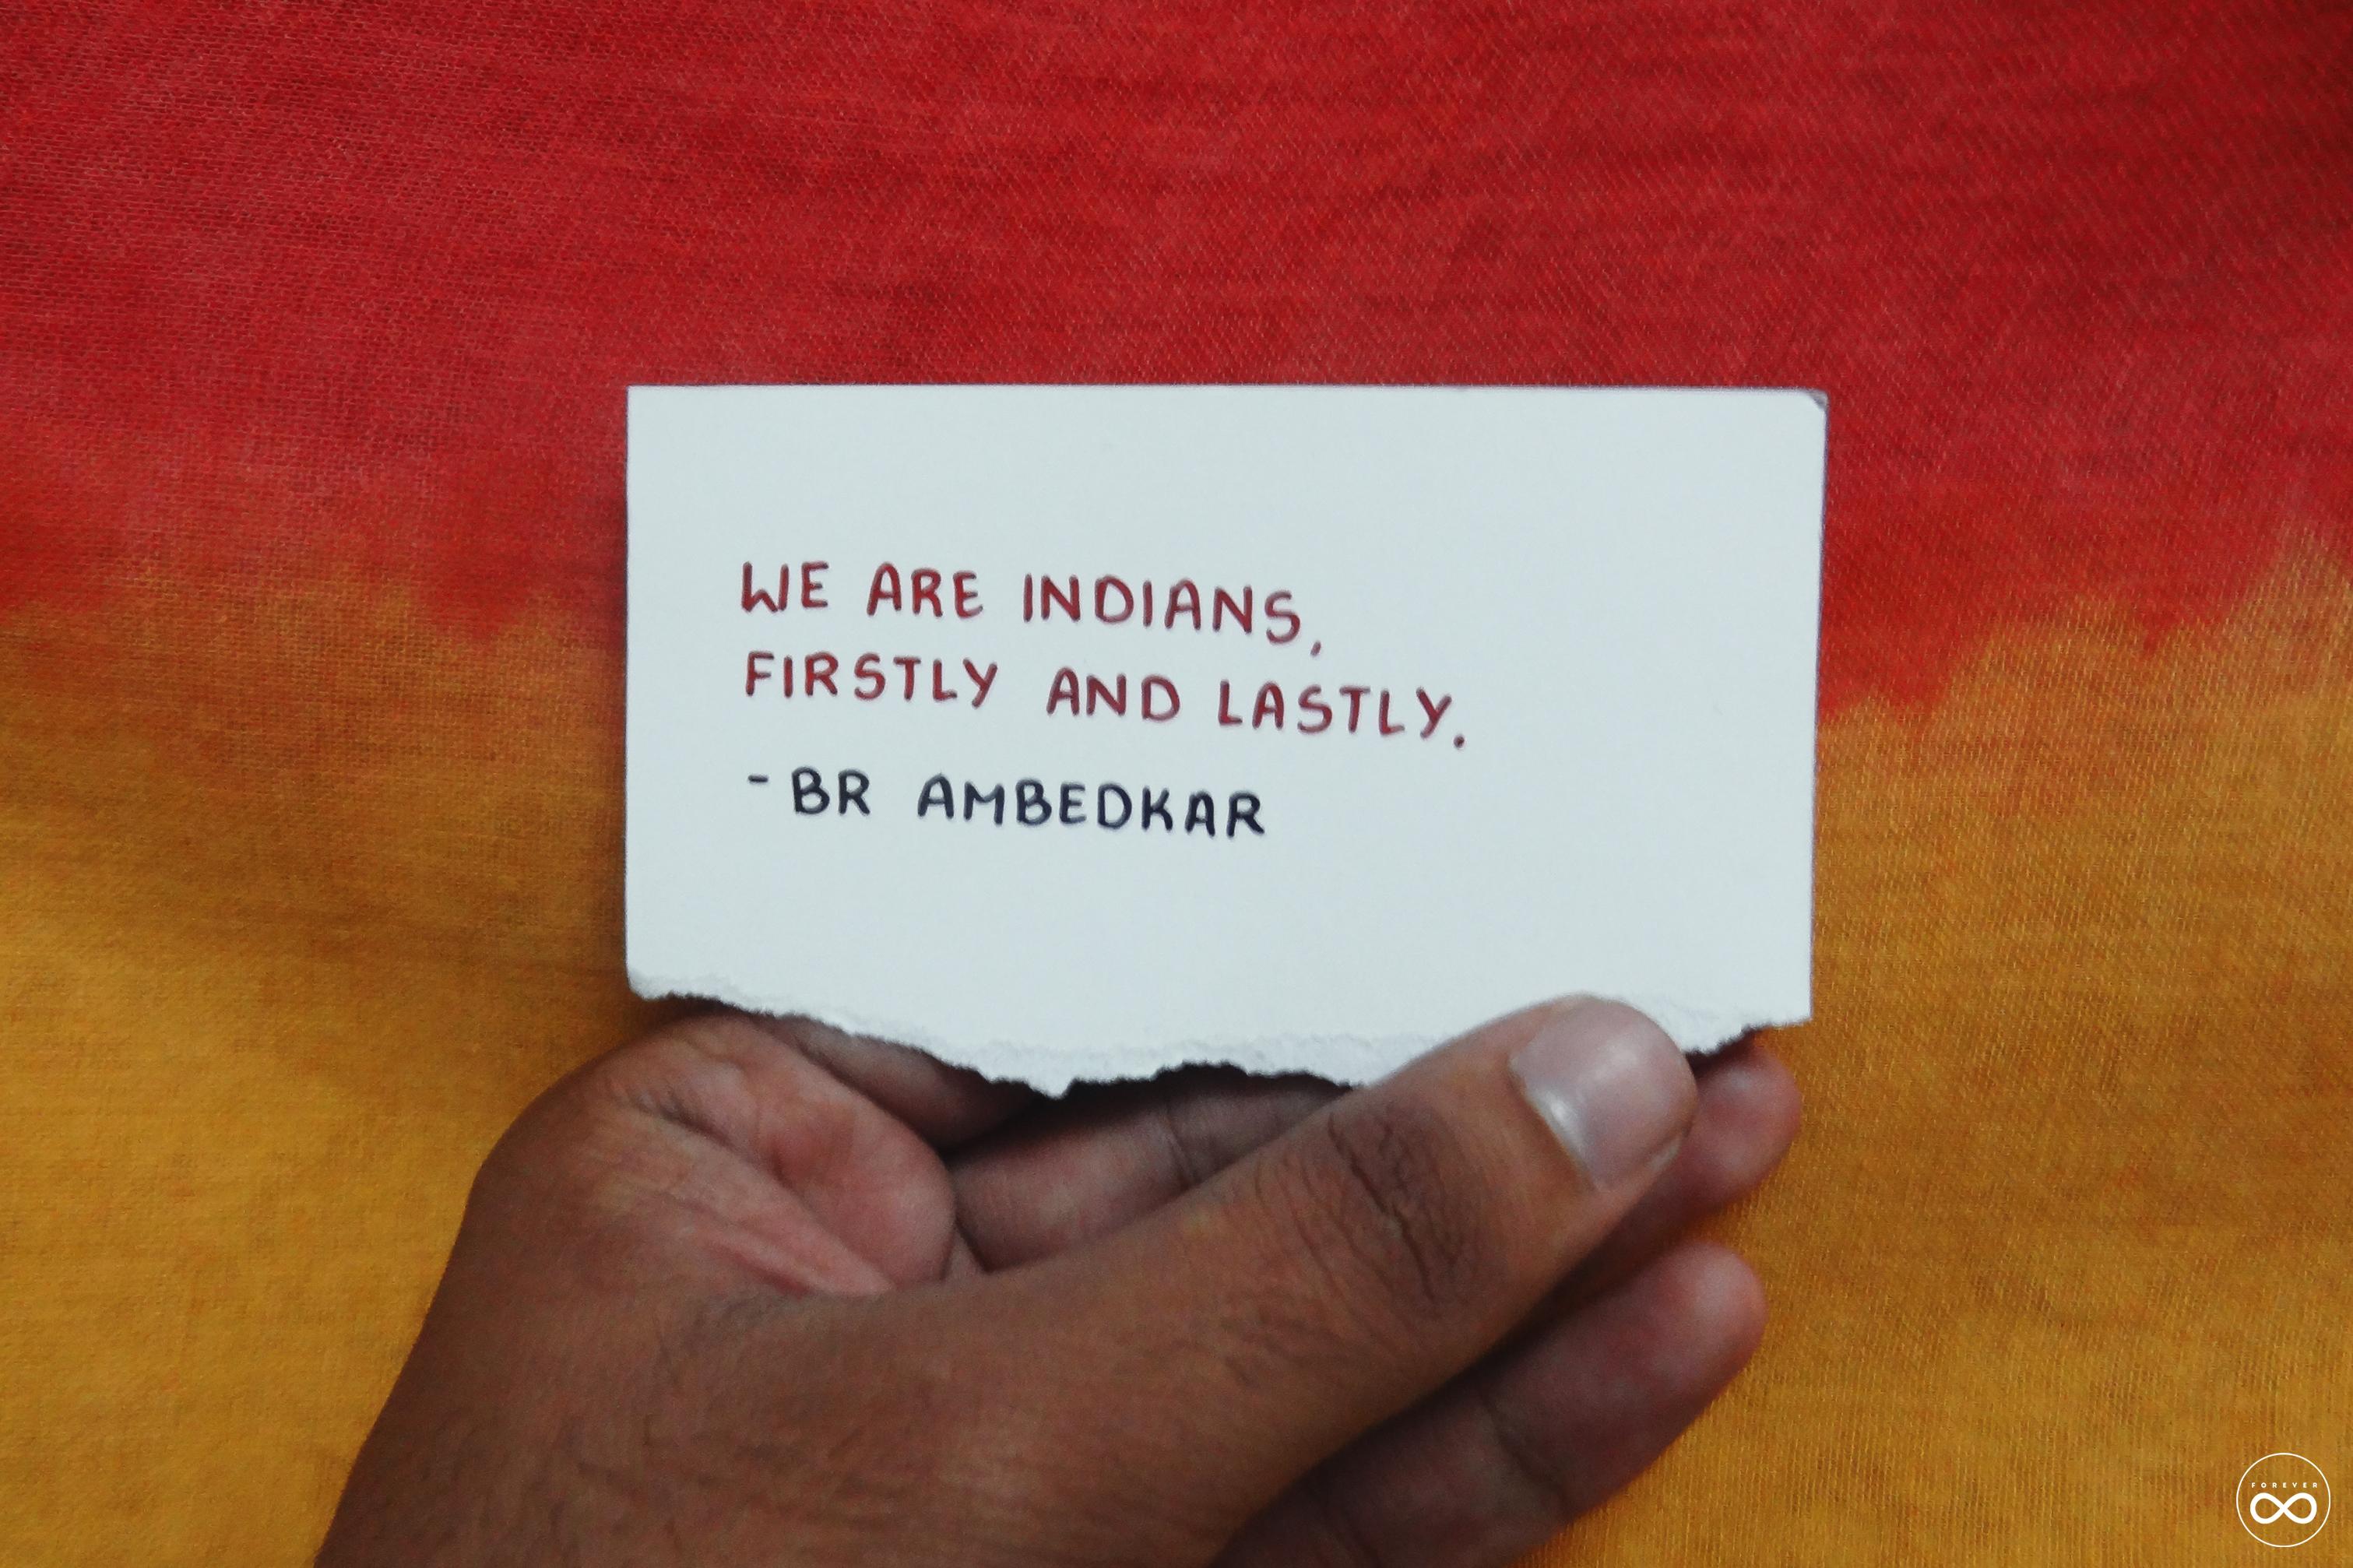 WE ARE INDIANS,
FIRSTLY AND LASTLY.
- BR AMBEDKAR
FOREVER